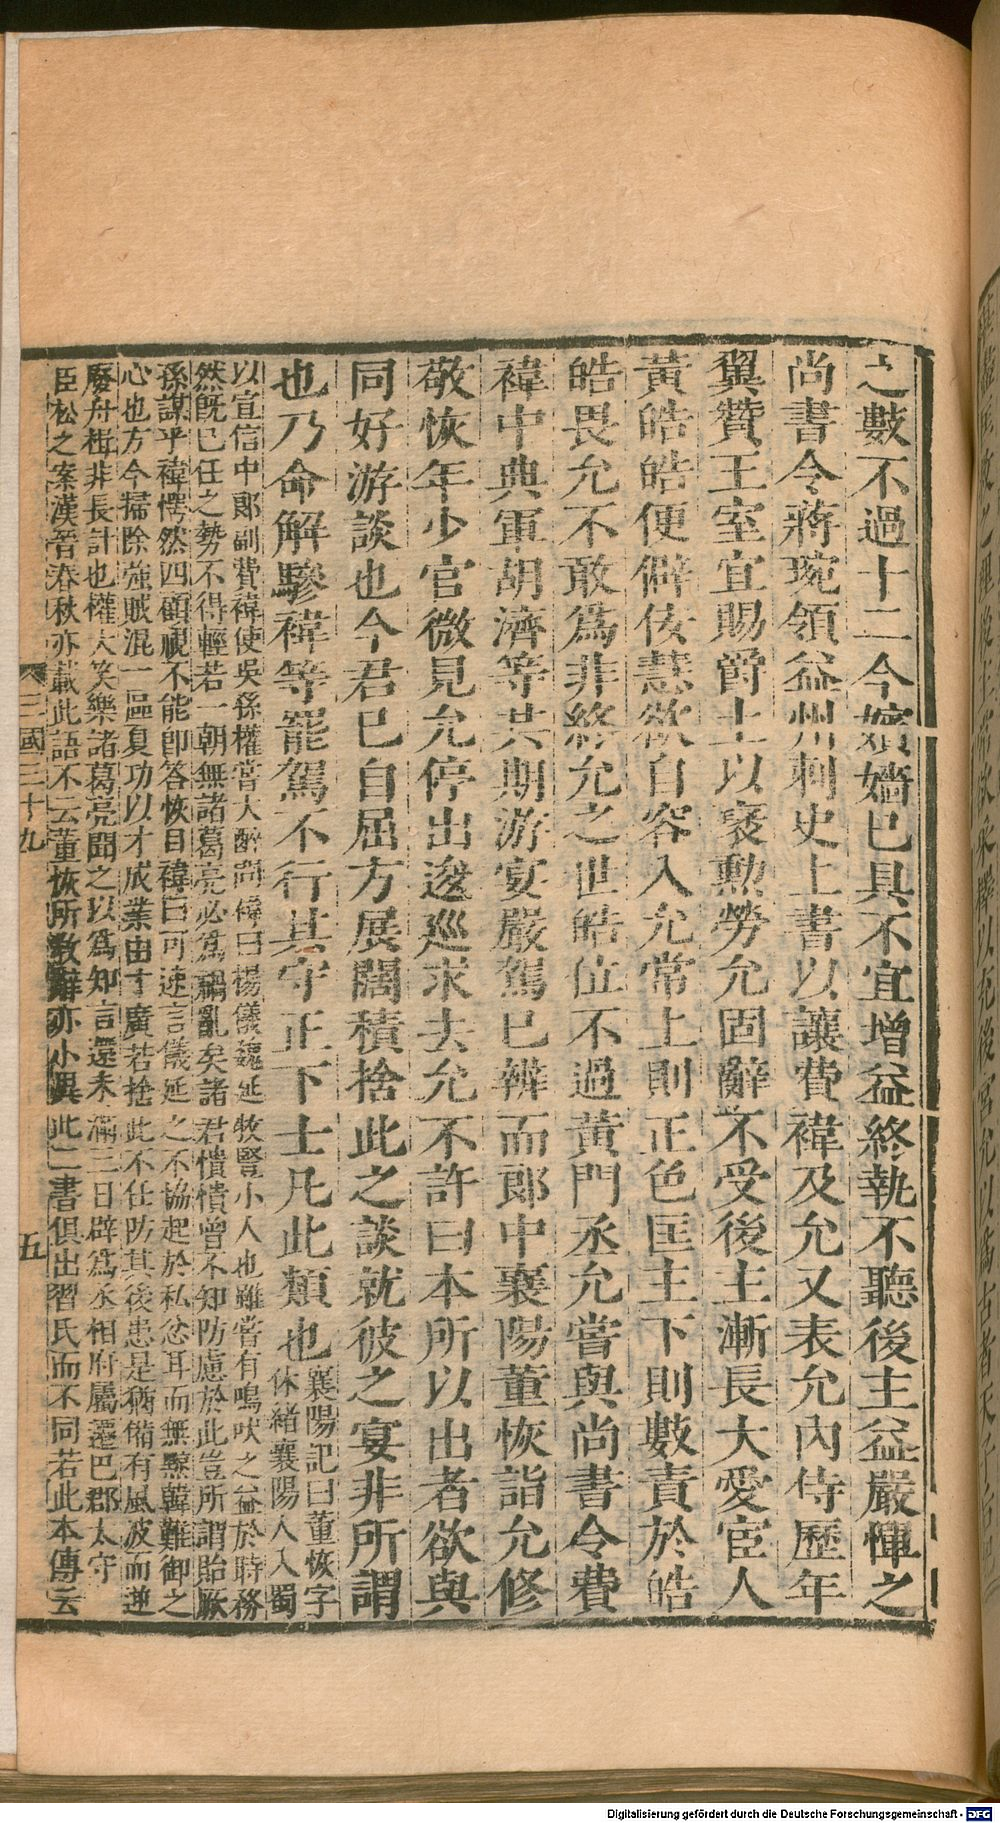 之數不過十二今嬪嬙已具不宜增益終執不聽後主益嚴憚之
尚書令蔣琬領益州刺史上書以讓費禕及允又表允內侍歷年
翼贊王室宜賜爵土以襃勳勞允固辭不受後主漸長大愛宦人
黃皓皓便僻佞慧欲自容入允常上則正色匡主下則數責於皓
皓畏允不敢爲非終允之世皓位不過黃門丞允嘗與尚書令費
禕中典軍胡濟等共期游宴嚴駕已辨而郎中襄陽董恢詣允修
敬恢年少官微見允停出逡巡求去允不許曰本所以出者欲與
同好游談也今君已自屈方展闊積捨此之談就彼之宴非所謂
也乃命解驂禕等罷駕不行其守正下士凡此類也
襄陽記曰董恢字
休緒襄陽人入蜀
以宣信中郎副費禕使吳孫權嘗大醉問禕曰楊儀魏延牧豎小人也雖嘗有鳴吠之益於時務
然旣已任之勢不得輕若一朝無諸葛亮必爲禍亂矣諸君憒憒曾不知防慮於此豈所謂貽厥
孫謀乎禕愕然四顧視不能卽答恢目禕曰可速言儀延之不協起於私忿耳而無黥韓難御之
心也方今掃除強賊混一區夏功以才成業由才廣若捨此不任防其後患是猶備有風波而逆
廢舟楫非長計也權大笑樂諸葛亮聞之以爲知言還未滿三日辟爲丞相府屬遷巴郡太守
臣松之案漢晉春秋亦載此語不云董恢所教辭亦小異此二書俱出習氏而不同若此本傳云
三國三十九
五
Digitalisierung gefördert durch die Deutsche Forschungsgemeinschaft - DFG